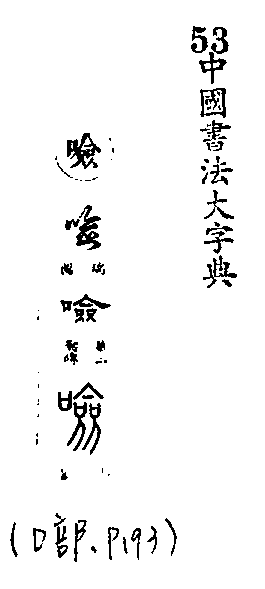 53
中國書法大字典
噞
噞
噞
噞
(口部、P193)